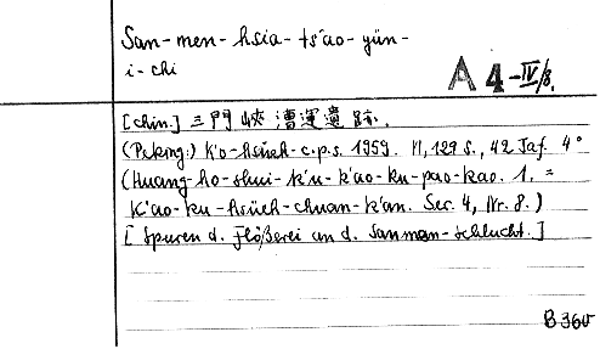 San-men-hsia-ts'ao-yün-
i-chi
A 4-IV/8.
[chin.] 三門峽漕運遺跡.
(Peking:) K'o-hsüeh-c.p.s. 1959. VI, 129 S., 42 Taf. 4°
(Huang-ho-shui-k'u-k'ao-ku-pao-kao. 1. =
K'ao-ku-hsüeh-chuan-k'an. Ser. 4, Nr. 8.)
[Spuren d. Flößerei an d. Sanmen-Schlucht.]
B 360